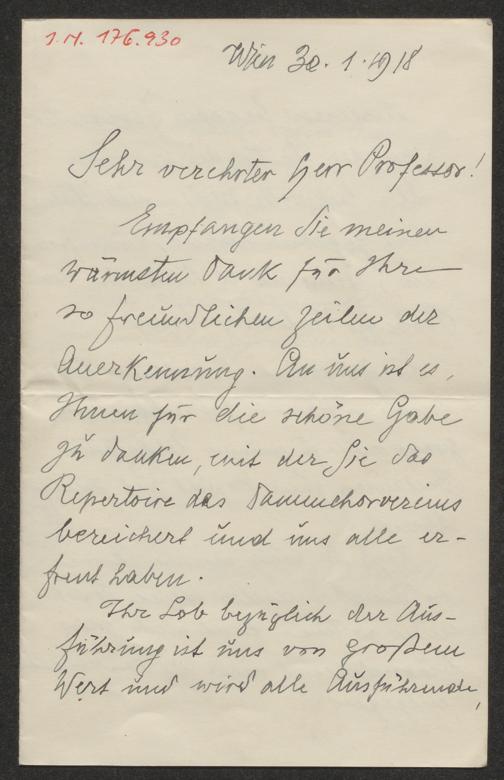 I.N. 176.930
Wien 30.1.1918
Sehr verehrter Herr Professor!
Empfangen Sie meinen
wärmsten Dank für Ihre
so freundlichen Zeilen der
Anerkennung. An uns ist es,
Ihnen für die schöne Gabe
zu danken, mit der Sie das
Repertoire des Damenchorvereins
bereichert und uns alle er-
freut haben.
Ihr Lob bezüglich der Aus-
führung ist uns von großem
Wert und wird alle Ausführende,